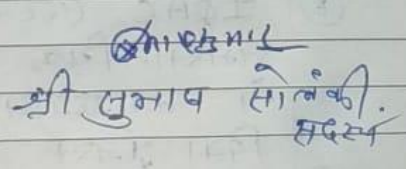 श्री सुभाष सोलंकी.
सदस्य